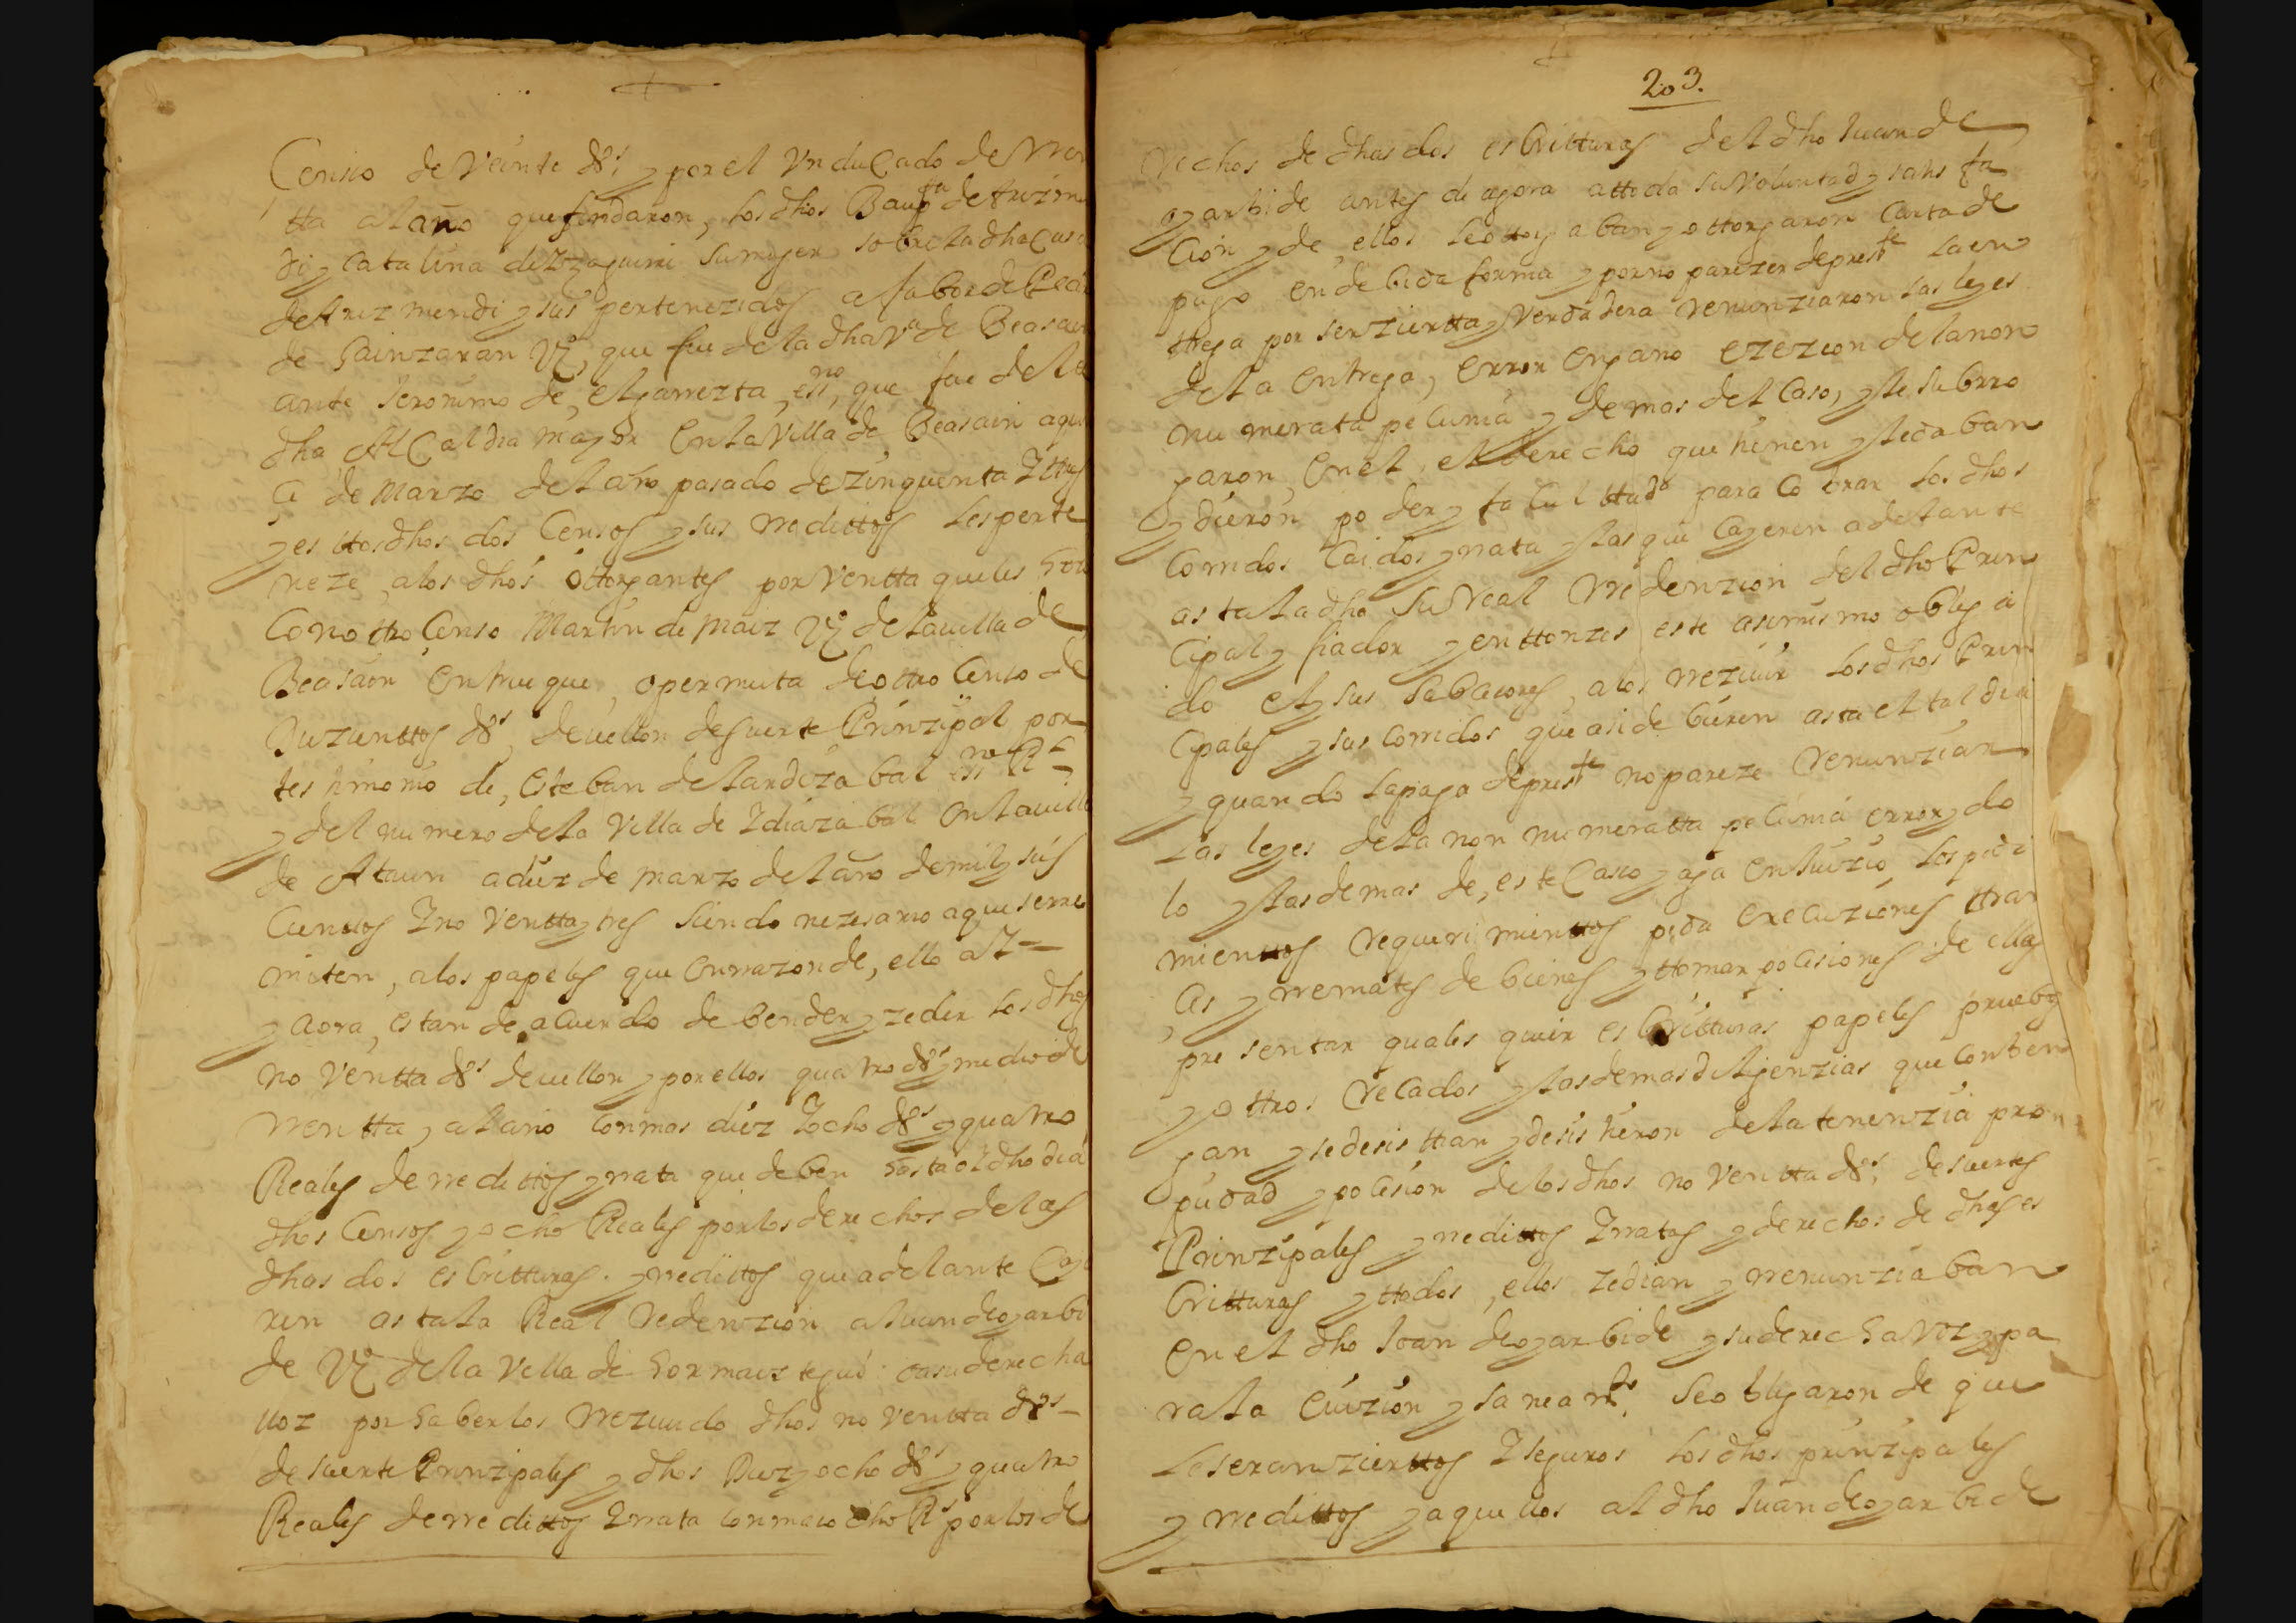 Censso de Veinte ds. y por el Vn ducado de rren
tta al año que fundaron, los dhos Baupta de Arizmen
di y Catalina de Yzaguirre su mujer sobre la dha Casa
de Arizmendi y sus pertenezidos a fabor de Pedro
de Sainzaran Vº que fue de la dha Vª de Beasain
ante Jeronimo de, elgarrezta, essno, que fue de la
dha Al Caldia mayor en la Villa de Beasain a quin
ce de Marzo del año pasado de zinquenta y ttres
y esttos dhos dos Censos y sus rredittos les perte
neze, a los dhos ottorgantes por Ventta que les hizo
con ottro Censo Martin de Maiz Vº de la uilla de
Beasain en trueque, o permuta de ottro Censo de
Duzienttos ds, de uellon de suerte Prinzipal por
testimonio de, Esteban de Lardizabal essno Rl
y del numero de la Villa de Idiazabal en la uilla
de Ataun a diez de Marzo del año de mil y seis
Cienttos y nobentta y tres siendo nezesario a que se rre
miten, a los papeles que en rrazon de, ello ay
y aora, estan de acuerdo de bender y zeder los dhos
nobentta ds de uellon y por ellos quatro ds y medio de
rrentta, al año con mas diez y ocho ds y quatro
Reales de rredittos y rrata que deben hasta el dho dia
dhos Censos y ocho Reales por los derechos de las
dhas dos escritturas. y rredittos que adelante Caye
ren asta la Real rredenzion a Juan de oyarbi
de Vº de la Villa de hormaiztegui o a su derecha
uoz por haberlos rrezuido dhos nobentta ds
de suerte Prinzipales y dhos Diez y ocho ds y quatro
Reales de rredittos y rrata con mas ocho Rs por los de
203.
rechos de dhas dos escritturas del dho Juan de
oyarbide antes de agora a ttoda su Voluntad y satisfa
cion y de, ellos le ottorgaban y ottorgaron Carta de
pago en debida forma y por no parezer de prestte la en
ttrega por ser ziertta y Verdadera renunziaron las leyes
de la entrega, error engaño ezezion de la non
numerata pecunia y demas del Caso, y le subrro
garon en el, el derecho que tienen y le daban
y dieron poder y facultad para Cobrar los dhos
Corridos Caidos y rrata y las que Cayeren adelante
asta la dha su Real rredenzion del dho Prin
cipal y fiador y enttonzes este asimismo obliga
do el y sus subcesores, a los rrezuir los dhos Prin
cipales y sus corridos que asi debieren asta el tal dia
y quando la paga de prestte no pareze renunzian
las leyes de la non numeratta pecunia error y do
lo y las demas de, este Caso y aga en Juizio, los pedi
mienttos requerimienttos pida execuziones ttran
ces y rremates de bienes y ttomar posesiones de ellas
presentar quales quier escritturas papeles pruebas
y ottros recados y las demas diligenzias que conben
gan y se desisttian y desistieron de la tenenzia prop
piedad y posesion de los dhos nobentta ds, de suertes
Prinzipales y rredittos y rratas y derechos de dhas es
critturas y ttodos, ellos zedian y rrenunziaban
en el dho Joan de oyarbide y su derecha Voz y pa
ra la euizion y saneamto. se obligaron de que
le seran zierttos y seguros los dhos prinzipales
y rredittos y aquellos al dho Juan de oyarbide